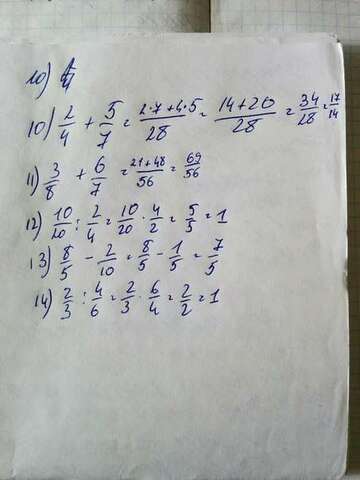 10) 2/4 + 5/7 = 2·7+4·5/28 = 14+20/28 = 34/28 = 17/14
11) 3/8 + 6/7 = 21+48/56 = 69/56
12) 10/20 : 2/4 = 10/20 · 4/2 = 5/5 = 1
13) 8/5 - 2/10 = 8/5 - 1/5 = 7/5
14) 2/3 : 4/6 = 2/3 · 6/4 = 2/2 = 1